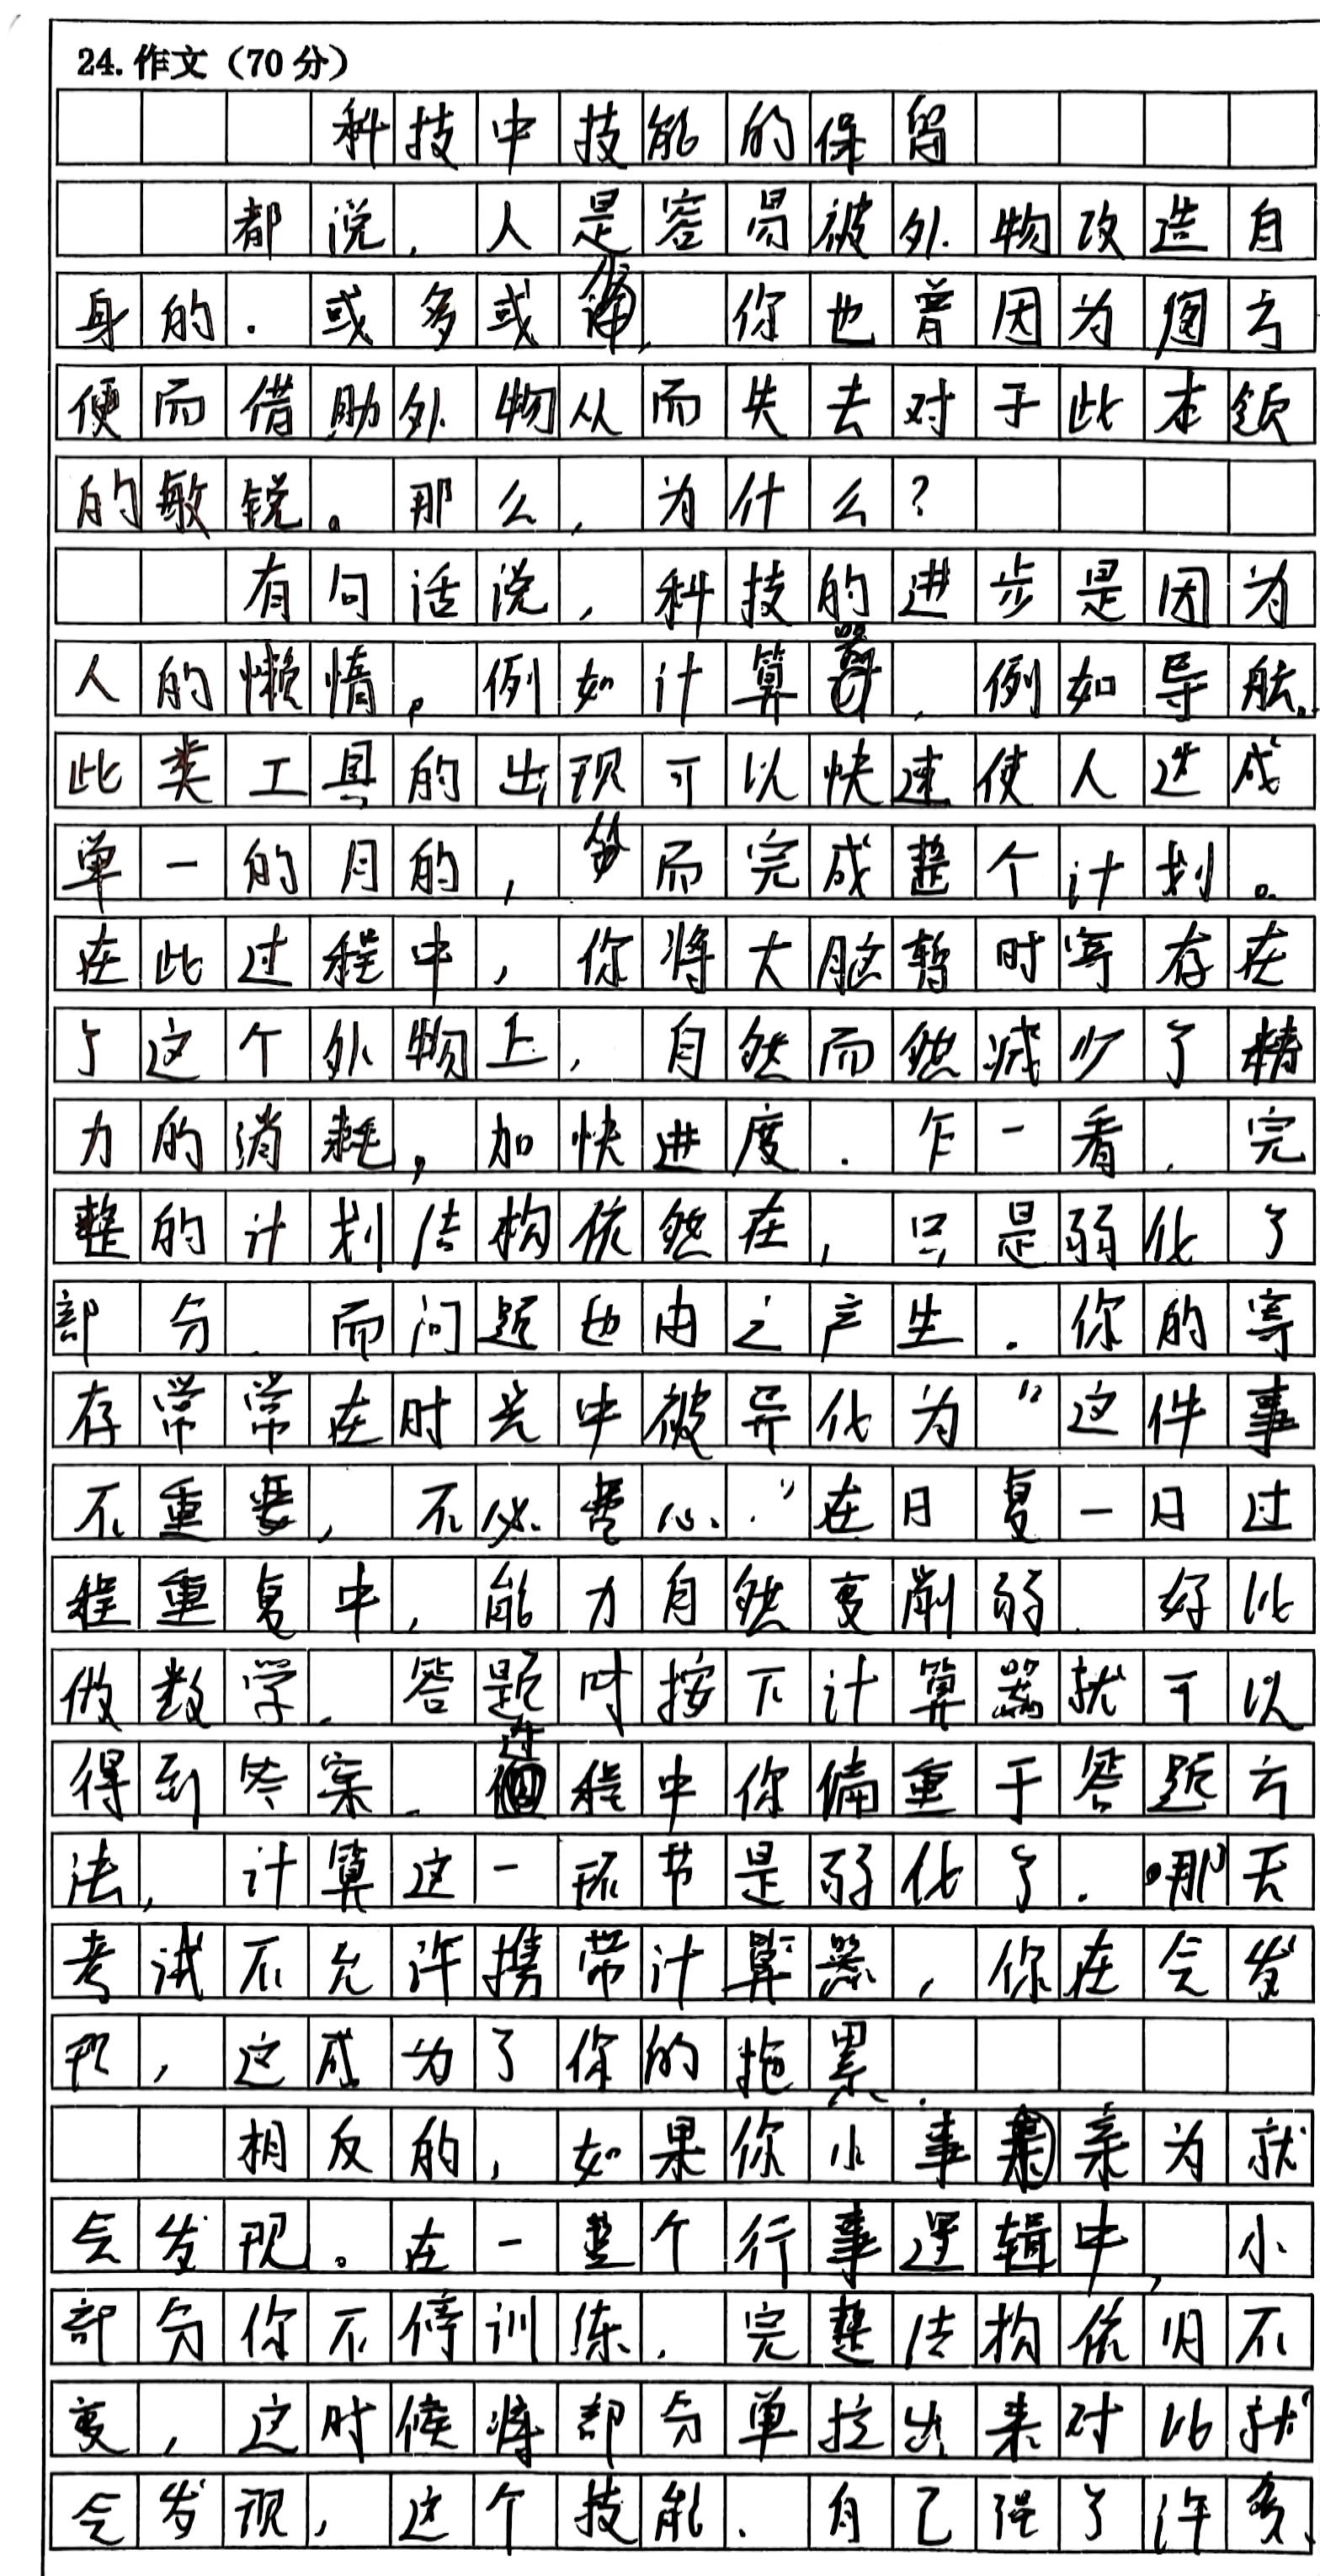 24. 作文（70分）
科技中技能的保留
都说，人是容易被外物改造自
身的．或多或，你也曾因为图方
便而借助外物从而失去对于此本领
的敏锐。那么，为什么？
有句话说，科技的进步是因为
人的懒惰。例如计算器，例如导航。
此类工具的出现可以快速使人达成
单一的目的，而完成整个计划。
在此过程中，你将大脑暂时寄存在
了这个外物上，自然而然减少了精
力的消耗，加快进度．乍一看，完
整的计划结构依然在，只是弱化了
部分，而问题也由之产生．你的寄
存常常在时光中被异化为“这件事
不重要，不必费心．”在日复一日过
程重复中，能力自然变削弱．好比
做数学，答题时按下计算器就可以
得到答案．过程中你偏重于答题方
法，计算这一环节是弱化了．哪天
考试不允许携带计算器，你在会发
现，这成为了你的拖累．
相反的，如果你小事亲为就
会发现。在一整个行事逻辑中，小
部分你不停训练．完整结构依旧不
变，这时候将部分单拉出来对比就
会发现，这个技能．自己强了许多、